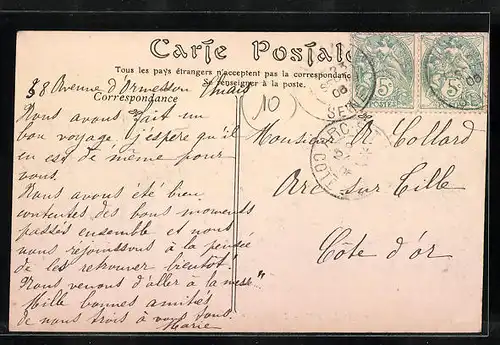 Carte Postale
Tous les pays étrangers n'acceptent pas la correspondance
Se renseigner à la poste.
Correspondance
28 Avenue d'Ormesson Thiais
Nous avons fait un
bon voyage. J'espère qu'il
en est de même pour
vous.
Nous avons été bien
contentes des bons moments
passés ensemble et nous
nous réjouissons à la pensée
de les retrouver bientôt.
Nous venons d'aller à la messe
Mille bonnes amitiés
de nous trois à vous tous.
Marie
10
Monsieur A. Collard
Arc sur Tille
Côte d'or
5c 5c
POSTES
08 SEINE
ARC
COTE
08